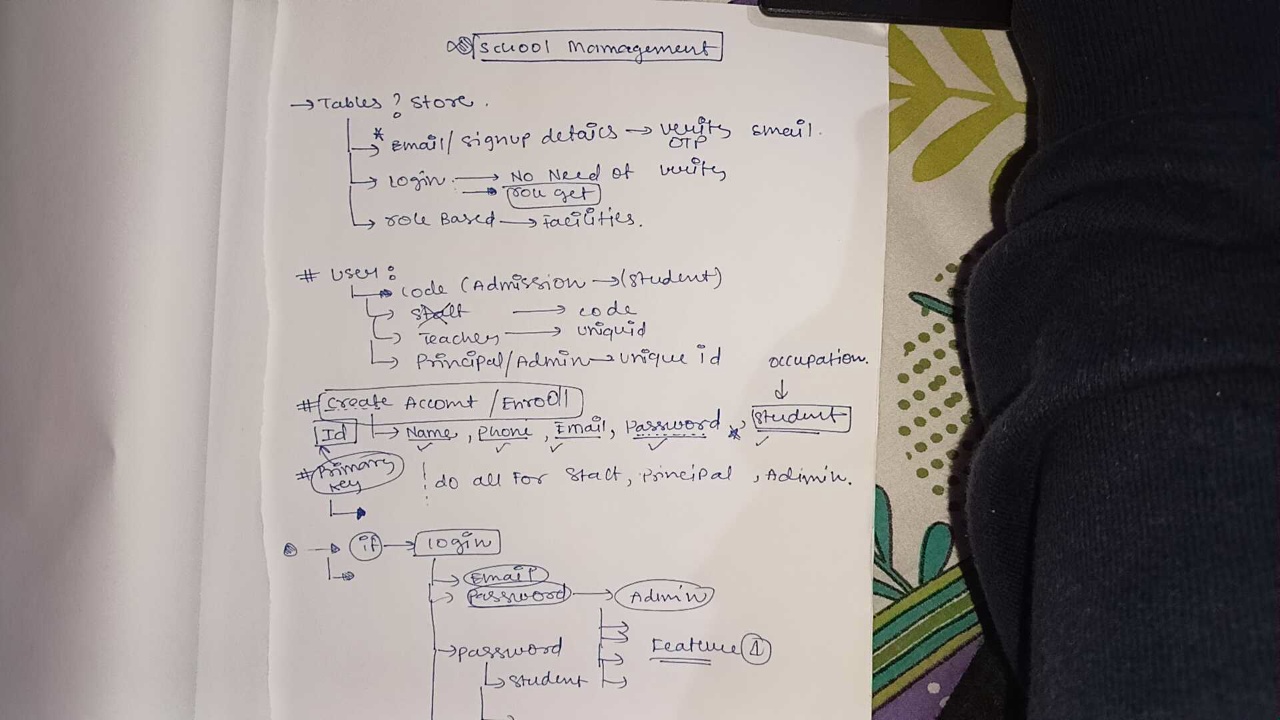 School Management
→ Tables ? Store.
* Email/Signup details → verify Email.
OTP
→ Login → No Need of verify
→ role get
→ role Based → Facilities.
# User :
→ code (Admission → (Student)
→ Staff → code
→ Teacher → uniquid
→ Principal/Admin → unique id
occupation.
# Create Account /Enroll
Id → Name, Phone, Email, Password, * Student
# Primary key
do all For Staff, Principal, Admin.
→ if → login
→ Email
→ Password → Admin
→ password Feature 1
→ Student